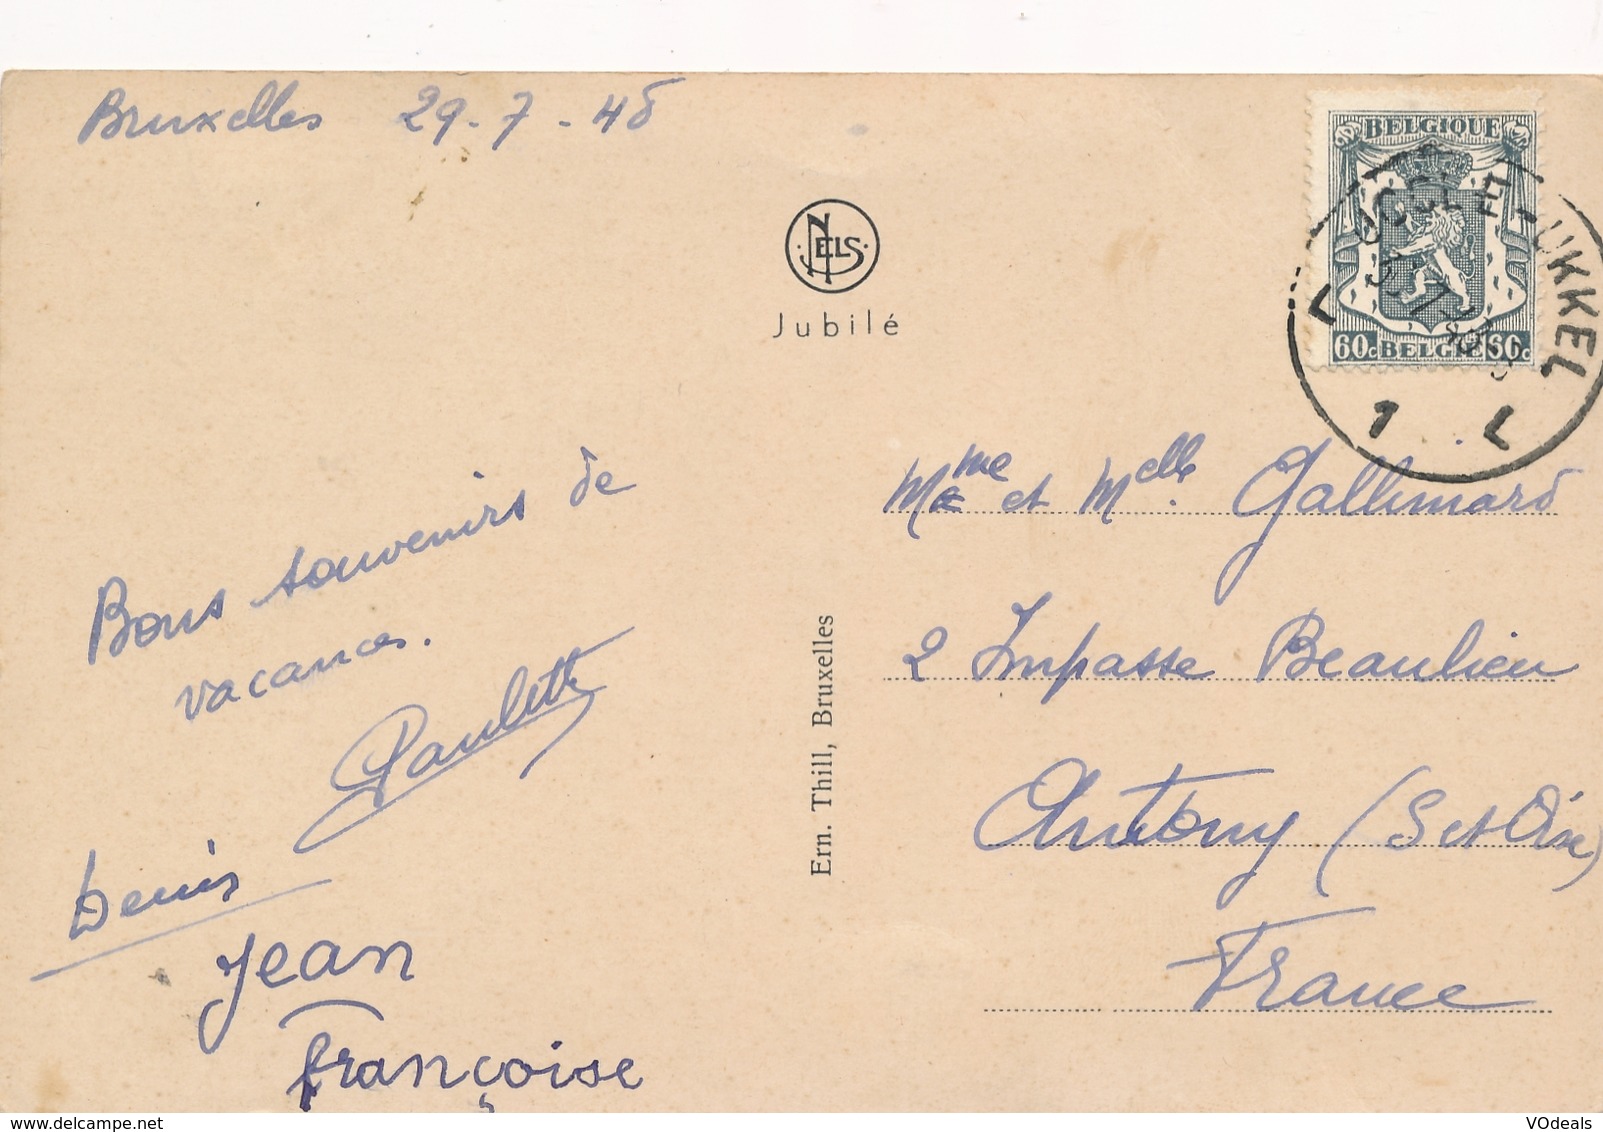 Bruxelles 29-7-48
BELGIQUE
60c BELGIE 60c
UCCLE - UKKEL
1
L L
NELS
Jubilé
Bons souvenirs de
vacances.
Paulette
Denis
Jean
françoise
Ern. Thill, Bruxelles
Mme et Melle Gallimard
2 Impasse Beaulieu
Antony (S et Oise)
France
www.delcampe.net
VOdeals